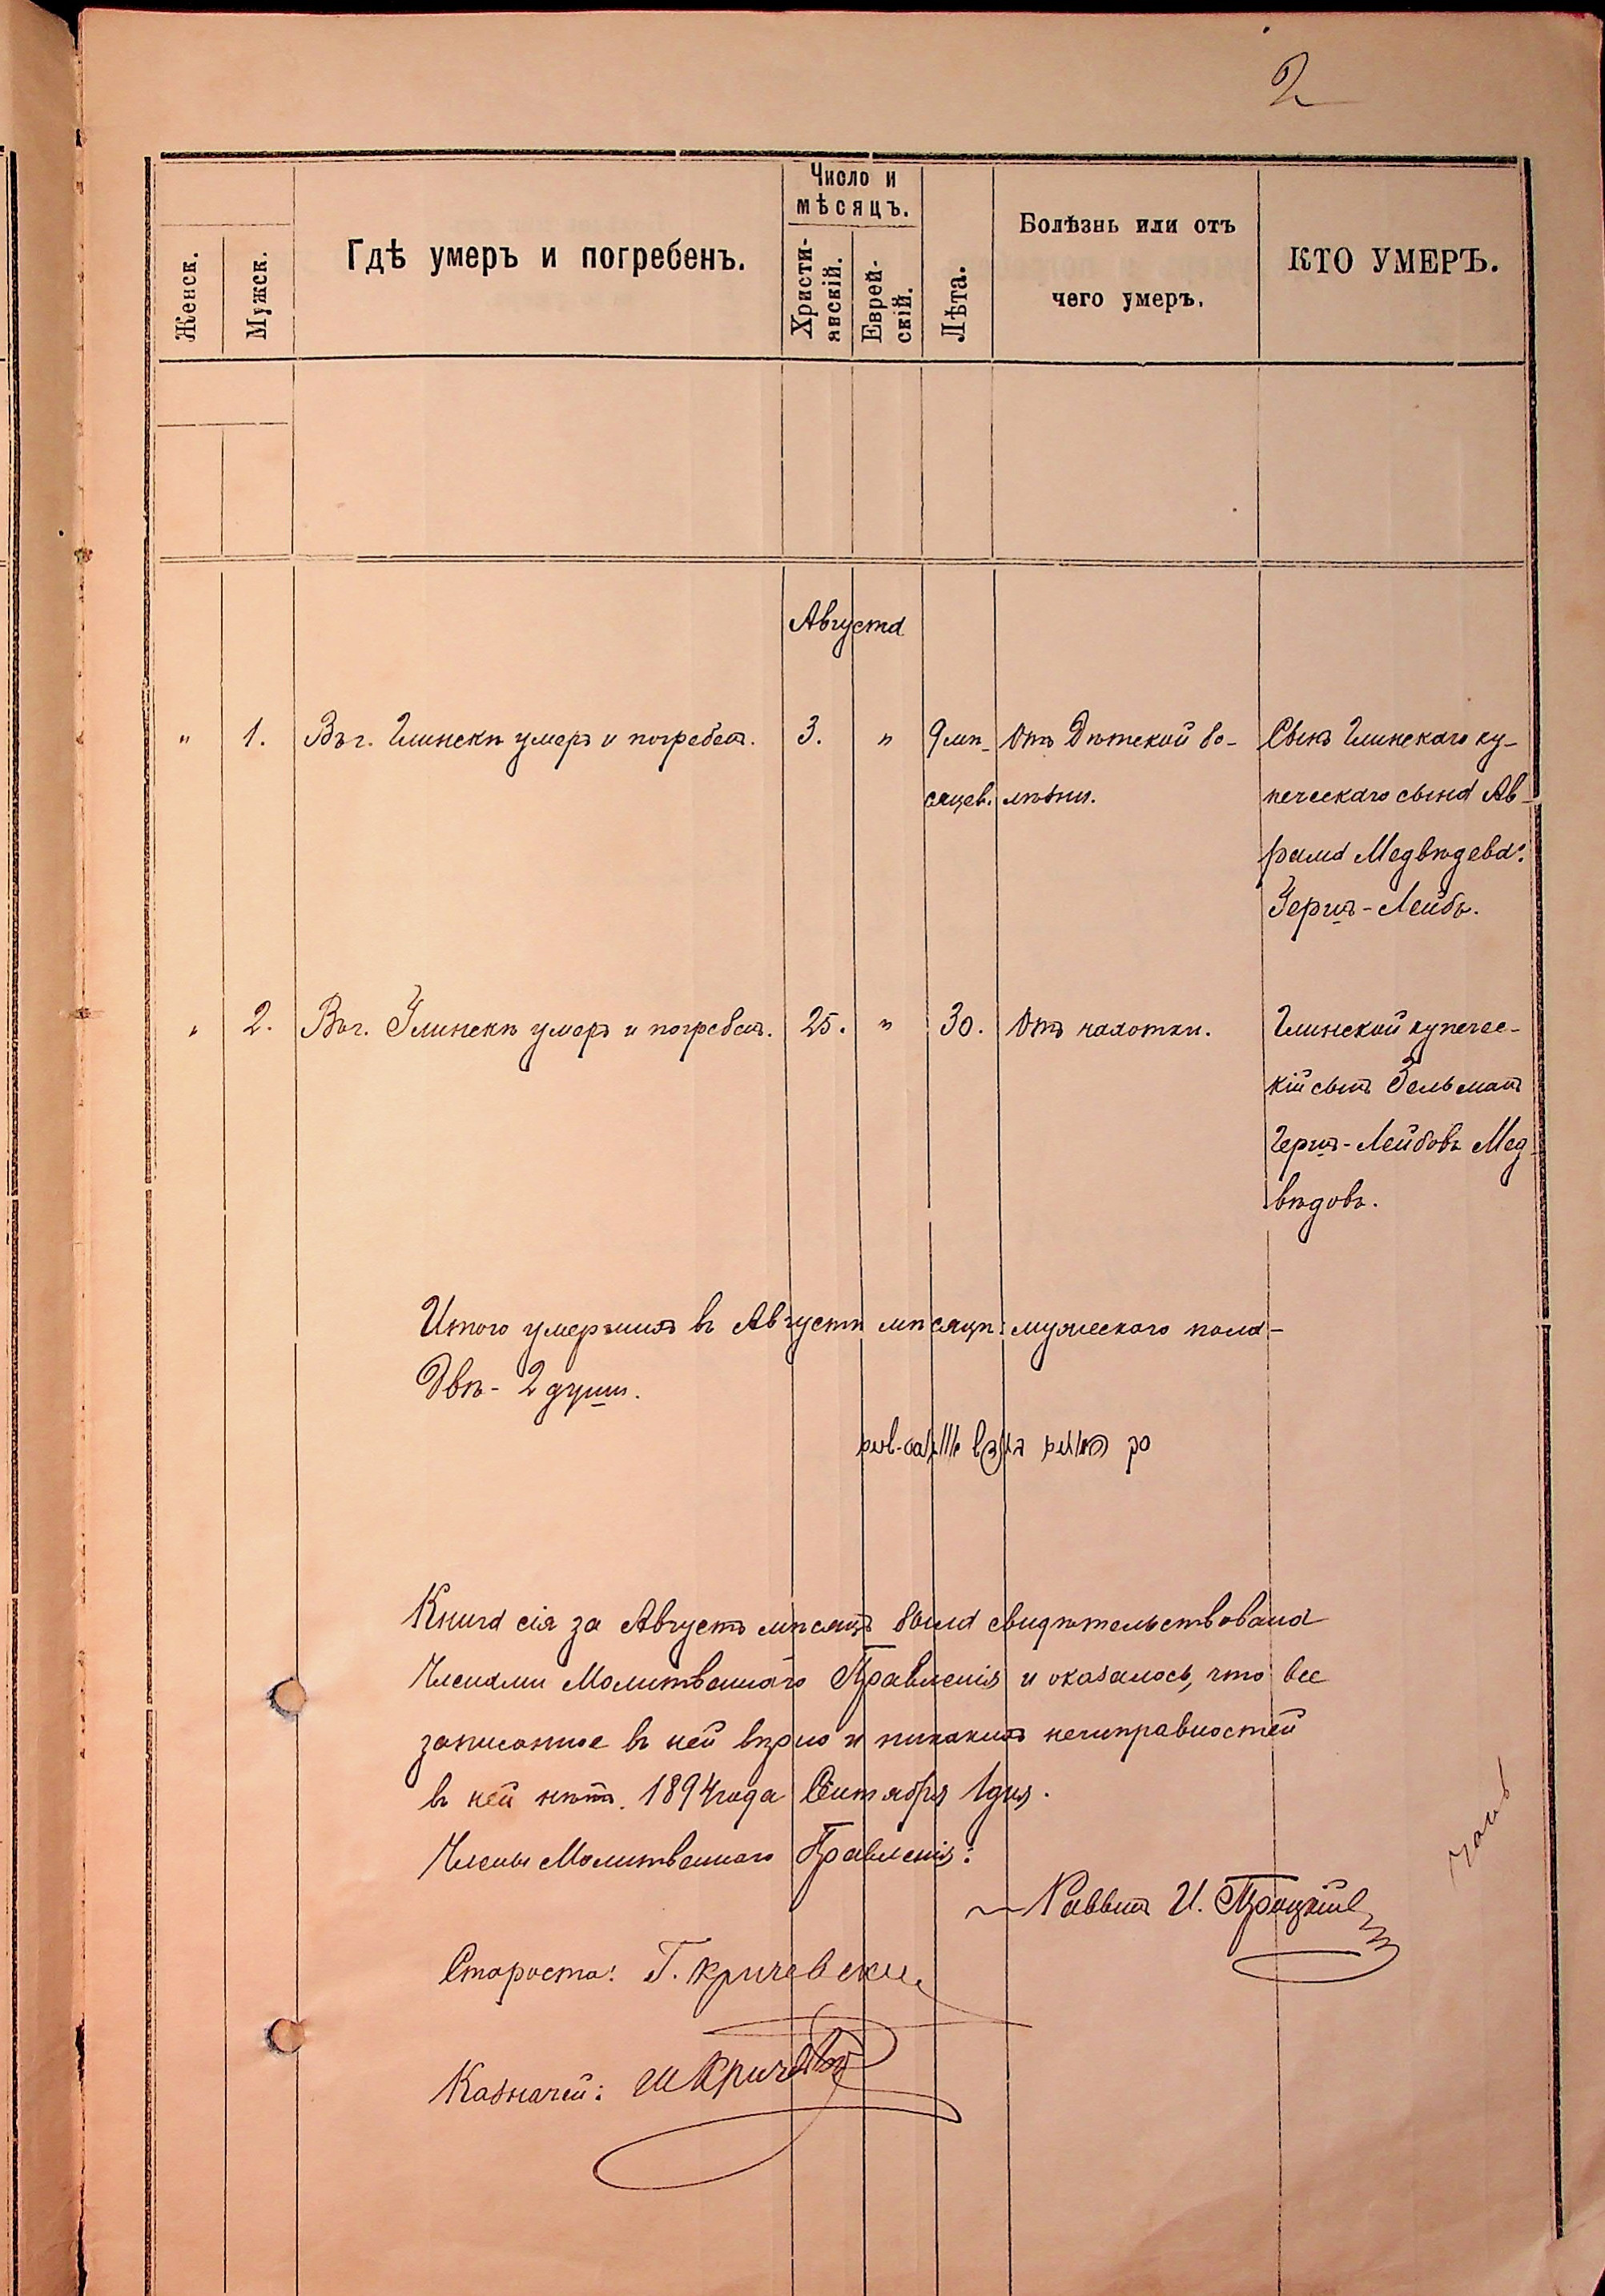 2
Женск.
Мужск.
Гдѣ умеръ и погребенъ.
Число и
мѣсяцъ.
Христи-
анскій.
Еврей-
скій.
Лѣта.
Болѣзнь или отъ
чего умеръ.
КТО УМЕРЪ.
Августа
„ 1. Въ г. Глинскѣ умеръ и погребенъ. 3. „ 9 мѣ- Отъ Дѣтской бо- Сынъ Глинскаго ку-
сяцев. лѣзни. печескаго сына Ав-
рама Медвѣдева:
Герцъ-Лейбъ.
„ 2. Въ г. Глинскѣ умеръ и погребенъ. 25. „ 30. Отъ чахотки. Глинской купечес-
кій сынъ Зельманъ
Герцъ-Лейбовъ Мед-
вѣдовъ.
Итого умершихъ въ Августѣ мѣсяцѣ: мужескаго пола-
Двѣ - 2 души.
Книга сія за Августъ мѣсяцъ была свидѣтельствована
Членами Молитвеннаго Правленія и оказалось, что все
записанное въ ней вѣрно и никакихъ неисправностей
въ ней нѣтъ. 1894 года Сентября 1 дня.
Члены Молитвеннаго Правленія:
Раввинъ И.
Староста: Г. Кричевски
Казначей: Ш Кричев